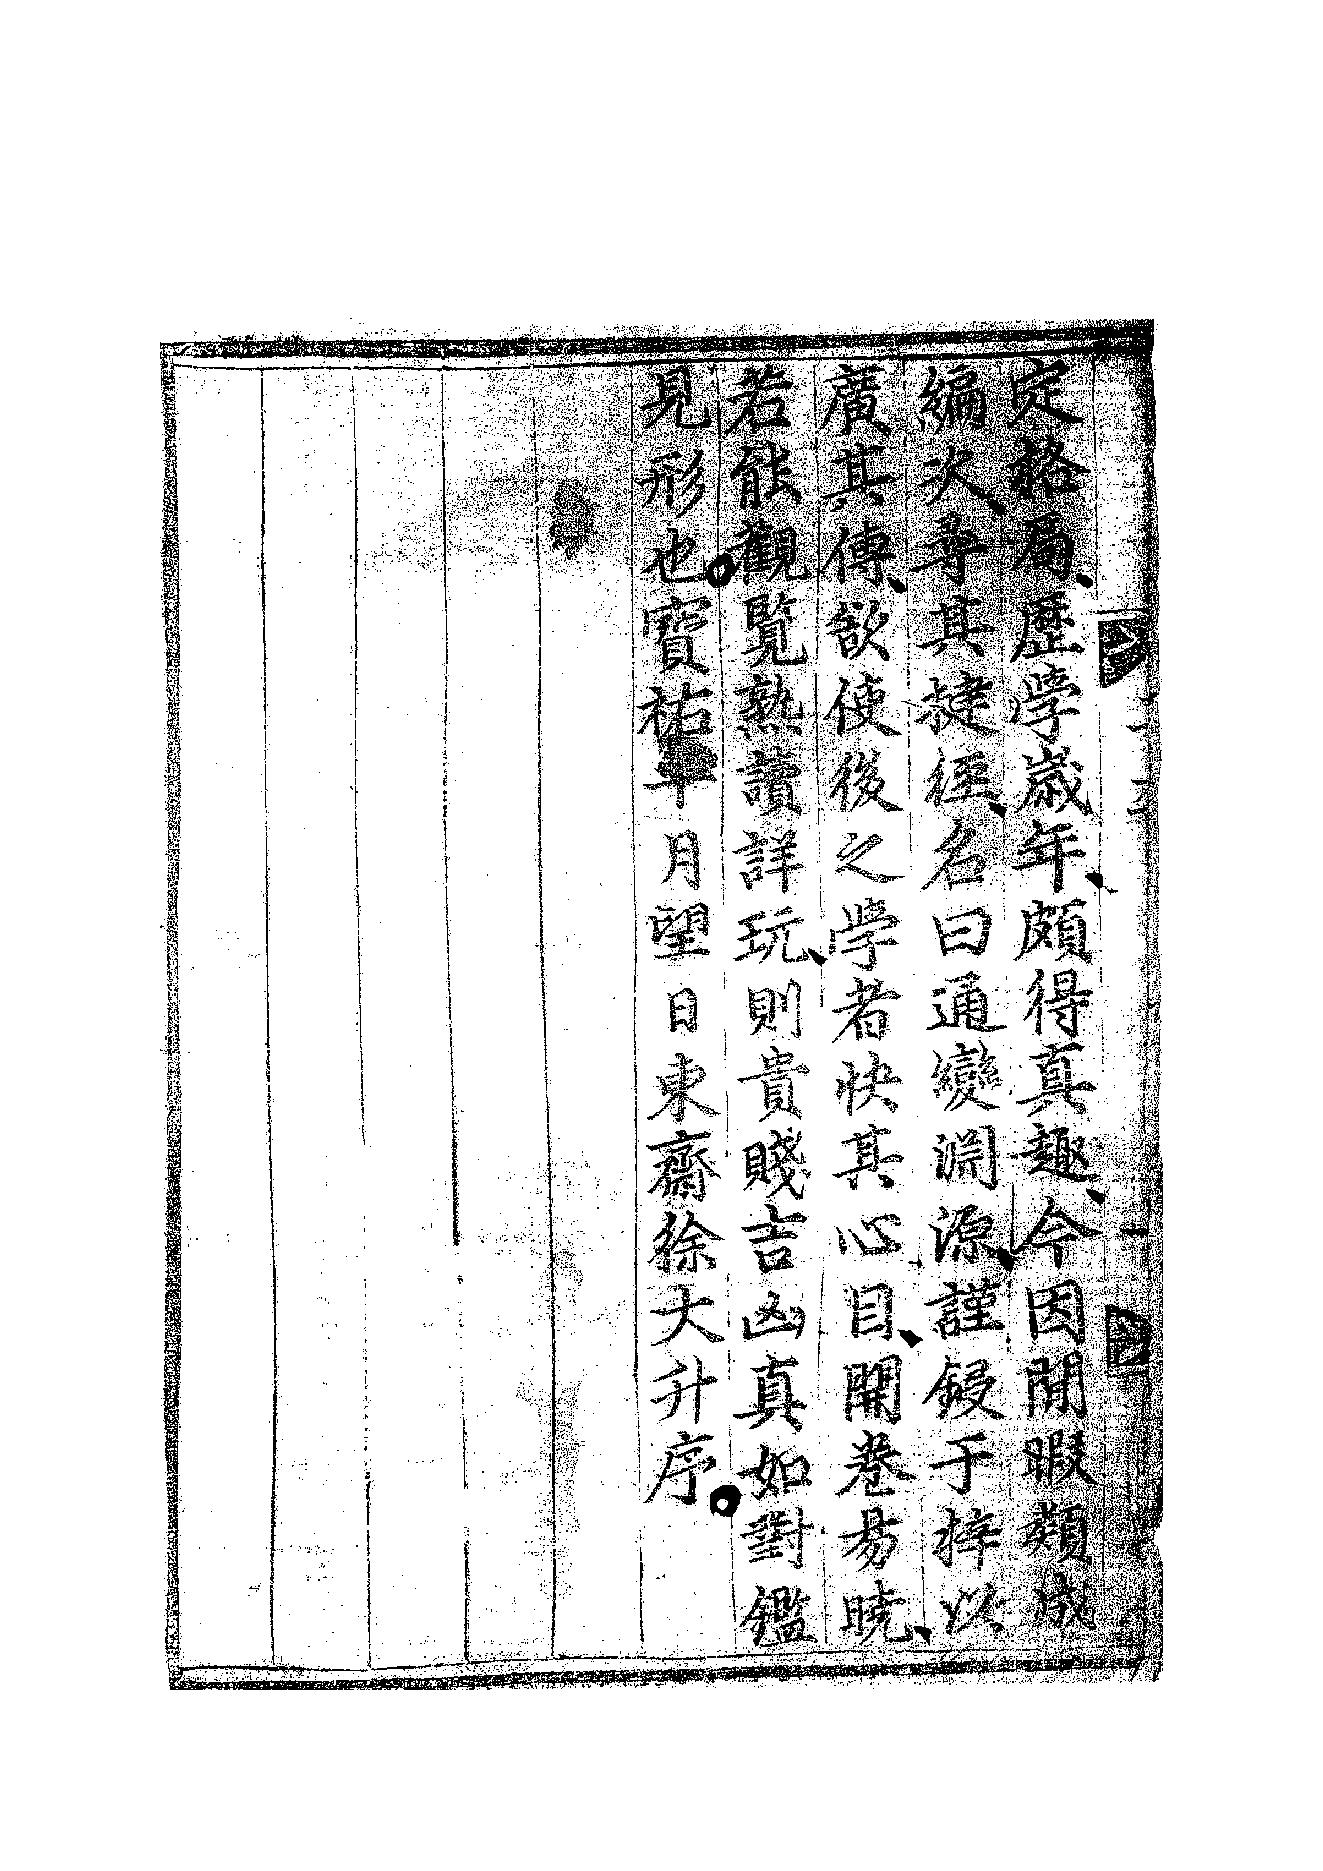 定格局歷學歲年頗得真趣今因閒暇類成
編次尋其捷徑名曰通變淵源謹鋟于梓以
廣其傳欲使後之學者快其心目開卷昜曉
若能觀覧熟讀詳玩則貴賤吉凶真如對鑑
見形也寶祐年月望日東齋徐大升序